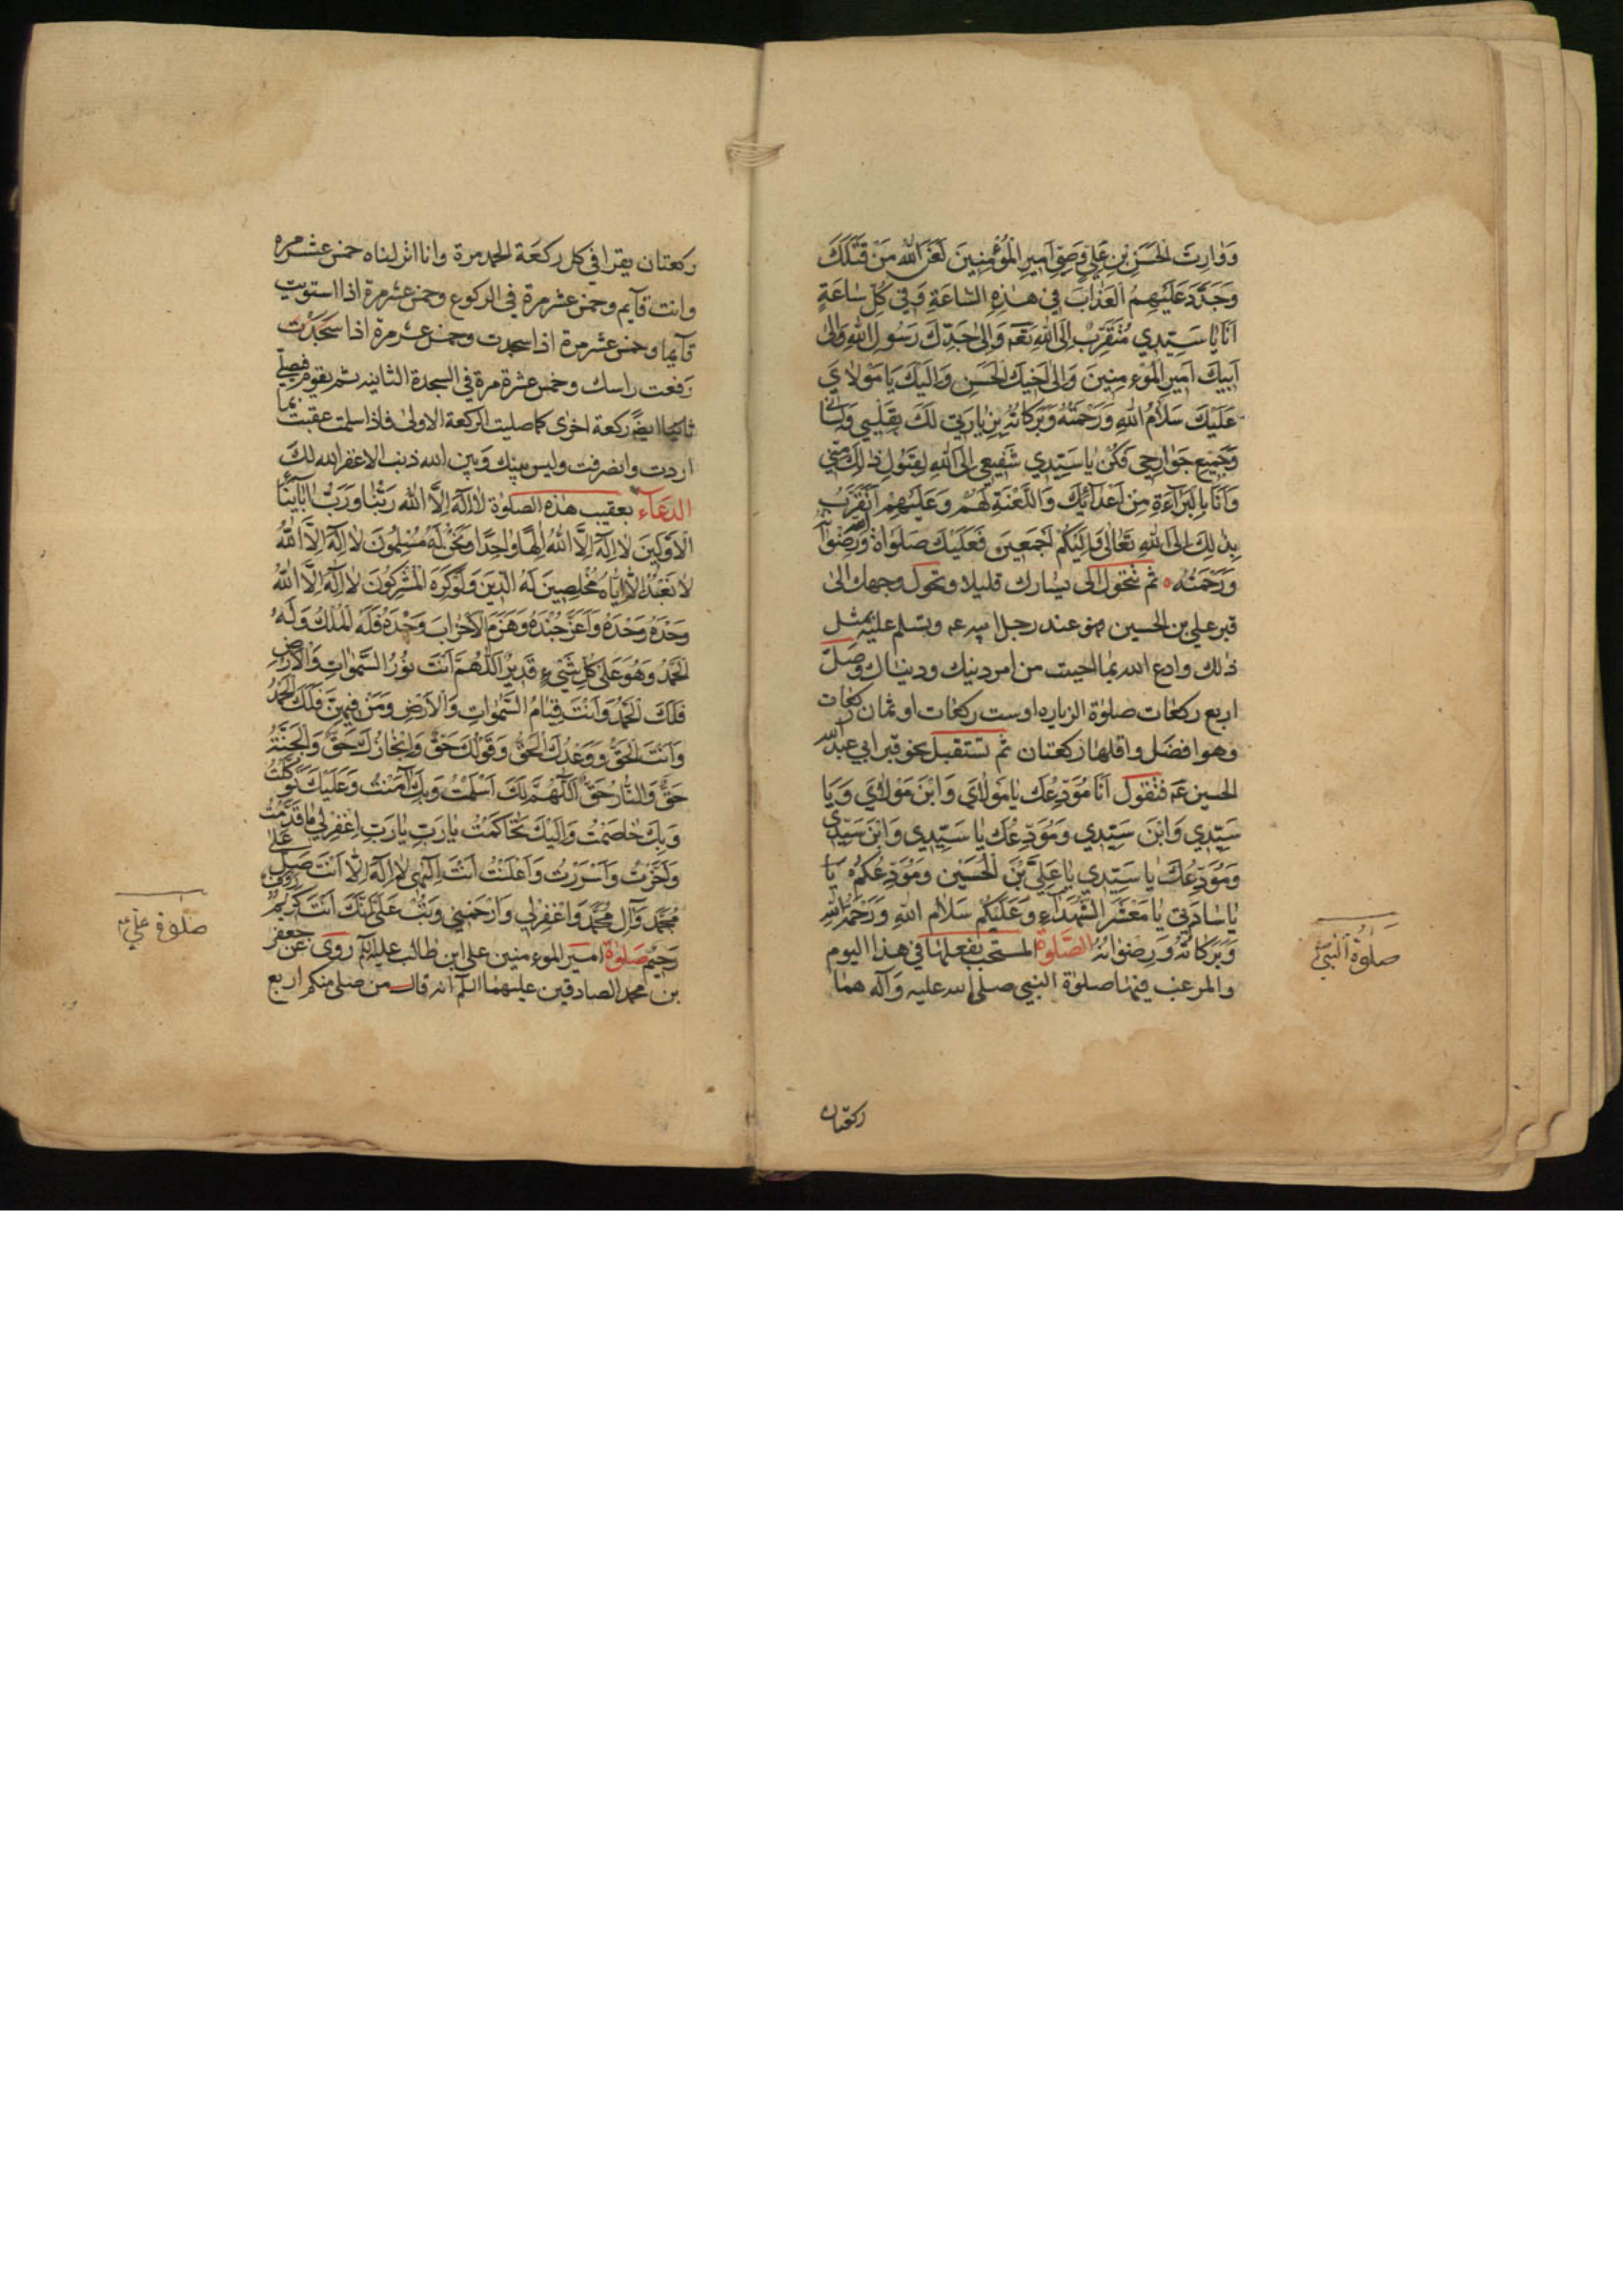 وَوَارِثَ الْحَسَنِ بْنِ عَلِيٍّ وَصِيِّ اَمِيرِ الْمُؤْمِنِينَ لَعَنَ اللهُ مَنْ قَتَلَكَ
وَجَدَّدَ عَلَيْهِمُ الْعَذَابَ فِي هٰذِهِ السَّاعَةِ وَفِي كُلِّ سَاعَةٍ
اَنَا يَا سَيِّدِي مُتَقَرِّبٌ اِلَى اللهِ تَعَالَى وَاِلٰى جَدِّكَ رَسُولِ اللهِ وَاِلٰى
اَبِيكَ اَمِيرِ الْمُؤْمِنِينَ وَاِلٰى اَخِيكَ الْحَسَنِ وَاِلَيْكَ يَا مَوْلَايَ
عَلَيْكَ سَلَامُ اللهِ وَرَحْمَتُهُ وَبَرَكَاتُهُ بِزِيَارَتِي لَكَ بِقَلْبِي وَلِسَانِي
وَجَمِيعِ جَوَارِحِي فَكُنْ يَا سَيِّدِي شَفِيعِي اِلَى اللهِ لِقَبُولِ ذٰلِكَ مِنِّي
وَاَنَا بِالْبَرَاءَةِ مِنْ اَعْدَائِكَ وَاللَّعْنَةِ لَهُمْ وَعَلَيْهِمْ اَتَقَرَّبُ
بِذٰلِكَ اِلَى اللهِ تَعَالٰى وَاِلَيْكُمْ اَجْمَعِينَ فَعَلَيْكَ صَلَوَاتُ اللهِ وَرِضْوَانُهُ
وَرَحْمَتُهُ ثم تتحول الى يسارك قليلا وتحول وجهك الى
قبر علي بن الحسين وهو عند رجل ابيه وتسلم عليه بمثل
ذلك وادع الله بما احببت من امر دينك ودنياك وَصَلِّ
اربع ركعات صلوة الزياره او ست ركعات او ثمان ركعات
وهو افضل واقلها ركعتان ثم تستقبل نحو قبر ابي عبد الله
الحسين فتقول اَنَا مُوَدِّعُكَ يَا مَوْلَايَ وَابْنَ مَوْلَايَ وَيَا
سَيِّدِي وَابْنَ سَيِّدِي وَمُوَدِّعُكَ يَا سَيِّدِي وَابْنَ سَيِّدِي
وَمُوَدِّعُكَ يَا سَيِّدِي يَا عَلِيَّ بْنَ الْحُسَيْنِ وَمُوَدِّعُكُمْ يَا
يَا سَادَتِي يَا مَعْشَرَ الشُّهَدَاءِ وَعَلَيْكُمْ سَلَامُ اللهِ وَرَحْمَةُ اللهِ
وَبَرَكَاتُهُ وَرِضْوَانُهُ الصَّلوةُ المستحب فعلها في هذا اليوم
والمرغب فيها صلوة النبي صلى الله عليه وآله هما
ركعتان
صلوة النبي
ركعتان يقرا في كل ركعة الحمد مرة وانا انزلناه خمس عشر مره
وانت قآيم وخمس عشر مرة في الركوع وخمس عشر مرة اذا استويت
قآيما وخمس عشر مرة اذا سجدت وخمس عشر مرة اذا
رفعت راسك وخمس عشرة مرة في السجدة الثانيه ثم يقوم فيصلي
ثانيا ايضا ركعة اخرى كما صليت الركعة الاولى فاذا سلمت عقبت بما
اردت وانصرفت وليس بينك وبين الله ذنب الا غفر الله لك
الدعاء بعقيب هذه الصلوة لَا اِلٰهَ اِلَّا اللهُ رَبُّنَا وَرَبُّ اٰبَائِنَا
الْاَوَّلِينَ لَا اِلٰهَ اِلَّا اللهُ اِلٰهًا وَاحِدًا وَنَحْنُ لَهُ مُسْلِمُونَ لَا اِلٰهَ اِلَّا اللهُ
لَا نَعْبُدُ اِلَّا اِيَّاهُ مُخْلِصِينَ لَهُ الدِّينَ وَلَوْ كَرِهَ الْمُشْرِكُونَ لَا اِلٰهَ اِلَّا اللهُ
وَحْدَهُ وَحْدَهُ وَاَعَزَّ جُنْدَهُ وَهَزَمَ الْاَحْزَابَ وَحْدَهُ فَلَهُ الْمُلْكُ وَلَهُ
الْحَمْدُ وَهُوَ عَلٰى كُلِّ شَيْءٍ قَدِيرٌ اَللّٰهُمَّ اَنْتَ نُورُ السَّمٰوَاتِ وَالْاَرْضِ
فَلَكَ الْحَمْدُ وَاَنْتَ قِيَامُ السَّمٰوَاتِ وَالْاَرْضِ وَمَنْ فِيهِنَّ فَلَكَ الْحَمْدُ
وَاَنْتَ الْحَقُّ وَوَعْدُكَ الْحَقُّ وَقَوْلُكَ حَقٌّ وَاِنْجَازُكَ حَقٌّ وَالْجَنَّةُ
حَقٌّ وَالنَّارُ حَقٌّ اَللّٰهُمَّ لَكَ اَسْلَمْتُ وَبِكَ اٰمَنْتُ وَعَلَيْكَ تَوَكَّلْتُ
وَبِكَ خَاصَمْتُ وَاِلَيْكَ حَاكَمْتُ يَا رَبِّ يَا رَبِّ اِغْفِرْ لِي مَا قَدَّمْتُ
وَاَخَّرْتُ وَاَسْرَرْتُ وَاَعْلَنْتُ اَنْتَ اِلٰهِي لَا اِلٰهَ اِلَّا اَنْتَ صَلِّ عَلٰى
مُحَمَّدٍ وَآلِ مُحَمَّدٍ وَاغْفِرْ لِي وَارْحَمْنِي وَتُبْ عَلَيَّ اِنَّكَ اَنْتَ كَرِيمٌ رَؤُفٌ
رَحِيمٌ صَلوةُ امير المومنين علي ابن ابي طالب عليه السلم روى عن جعفر
بن محمد الصادقين عليهما السلم انه قال من صلى منكم اربع
صلوة علي